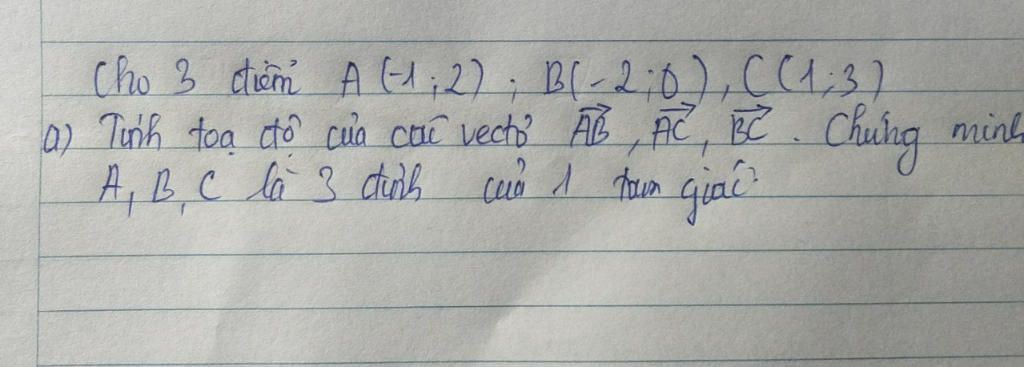 Cho 3 điểm A(-1;2); B(-2;0), C(1;3)
a) Tính toạ độ của các vectơ \overrightarrow{AB}, \overrightarrow{AC}, \overrightarrow{BC}. Chứng minh
A, B, C là 3 đỉnh của 1 tam giác